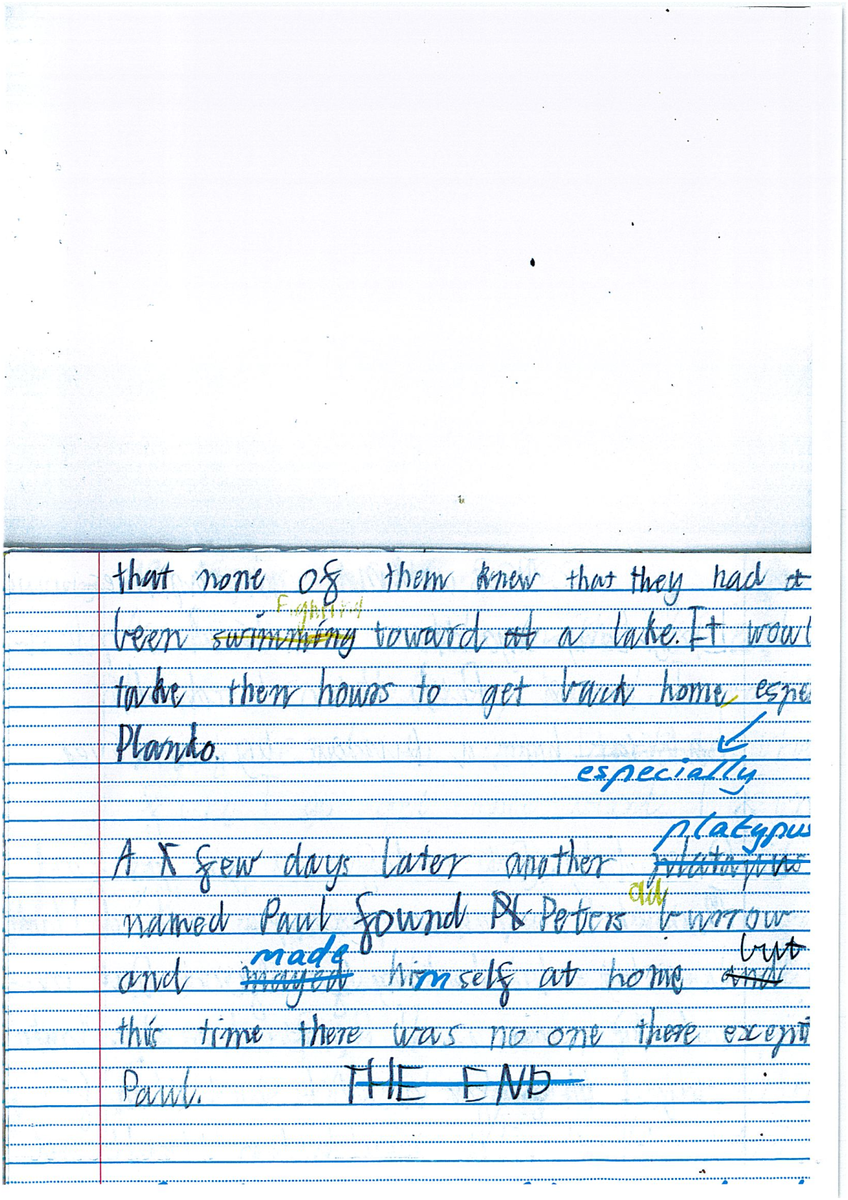 that none of them knew that they had
Fighting
been swimming toward a lake. It woul
take them hours to get back home, espe
Planko.
especially
platypus
A few days later another platapus
named Paul found Peters
old
burrow
made but
and mayed himself at home and
this time there was no one there except
Paul. THE END